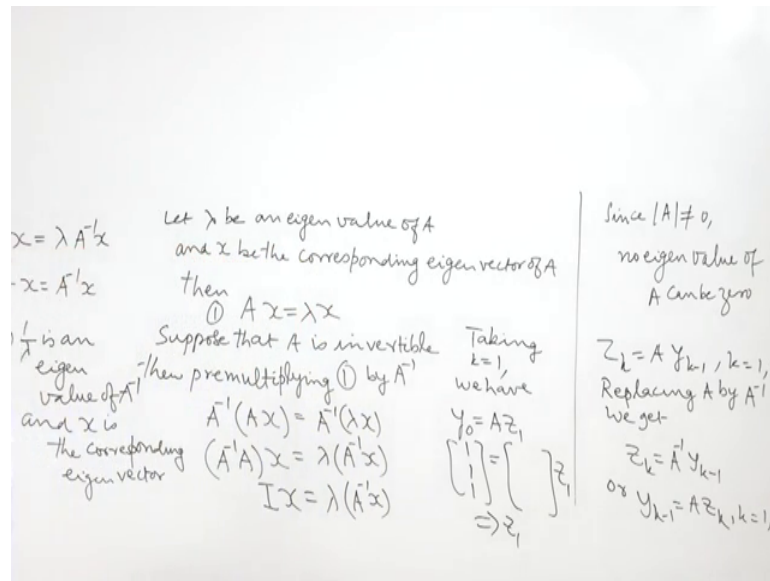 x = λ A⁻¹x
x = A⁻¹x
1/λ is an
eigen
value of A⁻¹
and x is
the corresponding
eigen vector
Let λ be an eigen value of A
and x be the corresponding eigen vector of A
then
① A x = λx
Suppose that A is invertible
then premultiplying ① by A⁻¹
A⁻¹(Ax) = A⁻¹(λx)
(A⁻¹A) x = λ(A⁻¹x)
I x = λ(A⁻¹x)
Taking
k=1,
we have
y₀ = AZ₁
[1 1 1] = [ ] Z₁
⇒ Z₁
Since |A| ≠ 0,
no eigen value of
A can be zero
Z_k = A y_{k-1}, k=1,
Replacing A by A⁻¹
We get
Z_k = A⁻¹ y_{k-1}
or y_{k-1} = A Z_k, k=1,